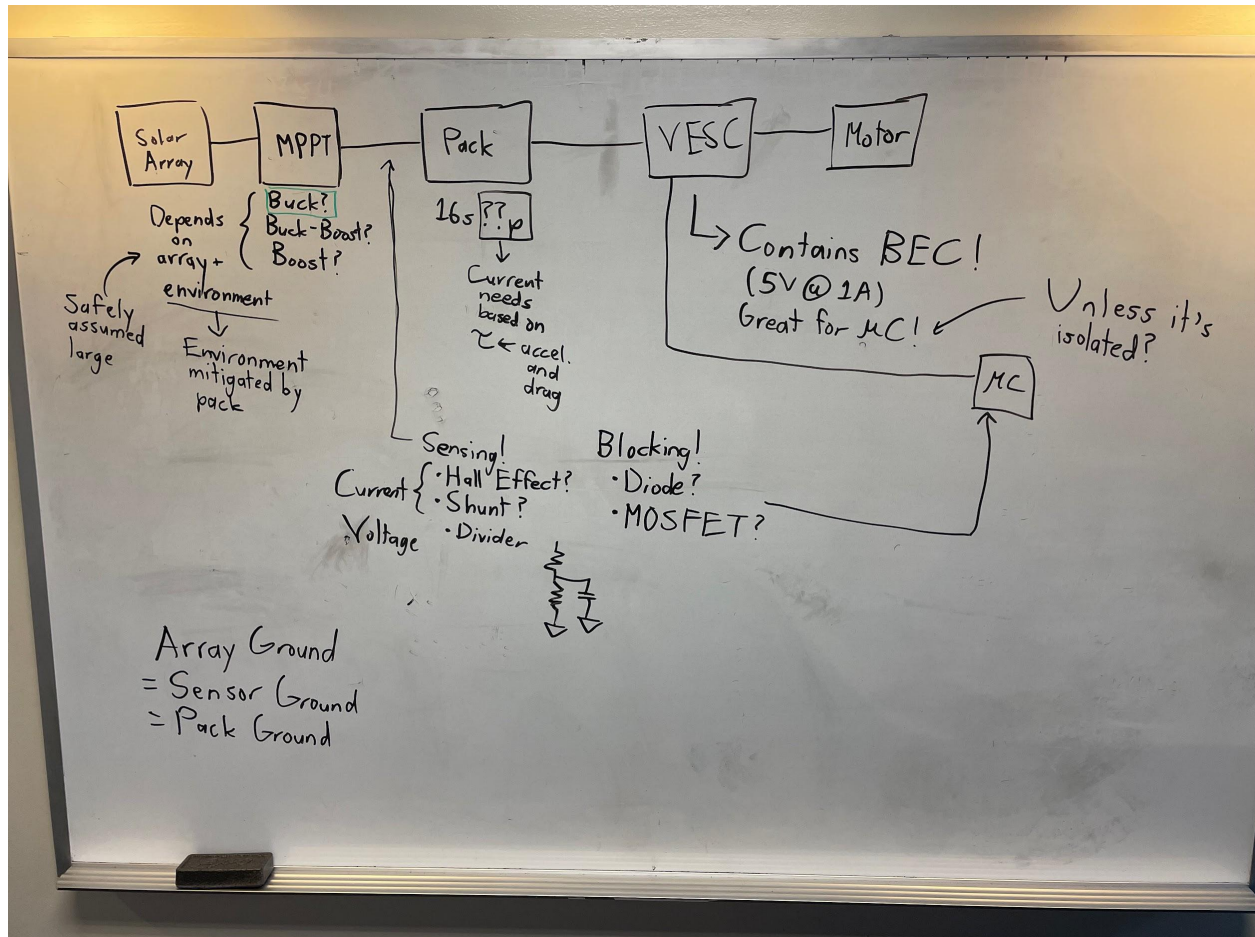 Solar
Array
MPPT
Pack
VESC
Motor
Buck?
Buck-Boost?
Boost?
Depends
on
array +
environment
Safely
assumed
large
Environment
mitigated by
pack
16s ??p
Current
needs
based on
τ ← accel.
and
drag
Contains BEC!
(5V @ 1A)
Great for μC!
Unless it's
isolated?
μC
Sensing!
Current
· Hall Effect?
· Shunt?
Voltage
· Divider
Blocking!
· Diode?
· MOSFET?
Array Ground
= Sensor Ground
= Pack Ground